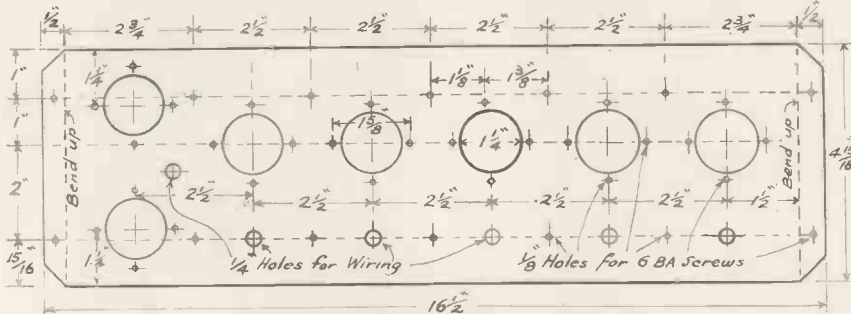 ½" 2¾" 2½" 2½" 2½" 2½" 2¾" ½"
1" 1¼" 1⅛" 1⅜"
1" 1⅝" 1¼" 4 15/16"
Bend up Bend up
2" 2½" 2½" 2½" 2½" 2½" 2½" 1½"
15/16" 1¼" ¼ Holes for Wiring ⅛ Holes for 6 BA Screws
16½"